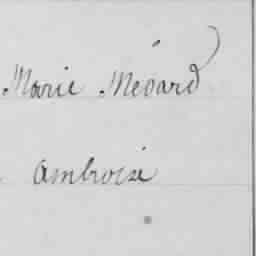 Marie Médard
ambroise